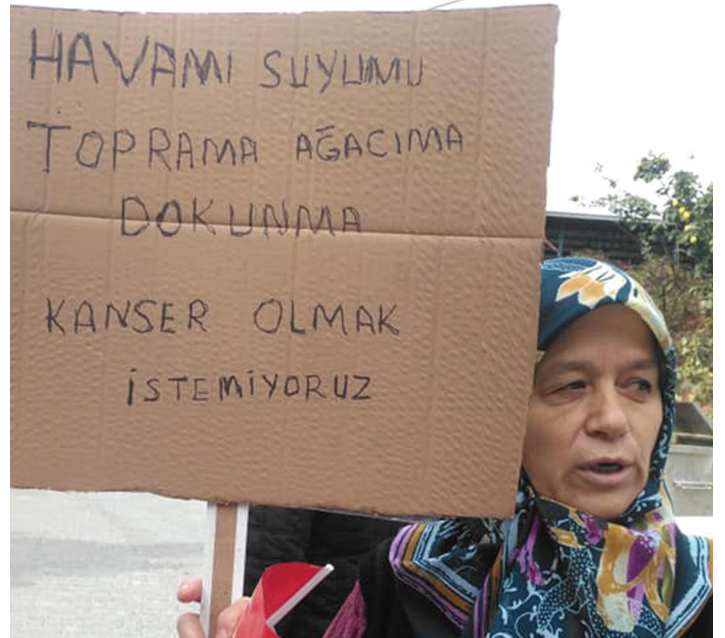 HAVAMI SUYUMU
TOPRAMA AĞACIMA
DOKUNMA
KANSER OLMAK
İSTEMİYORUZ